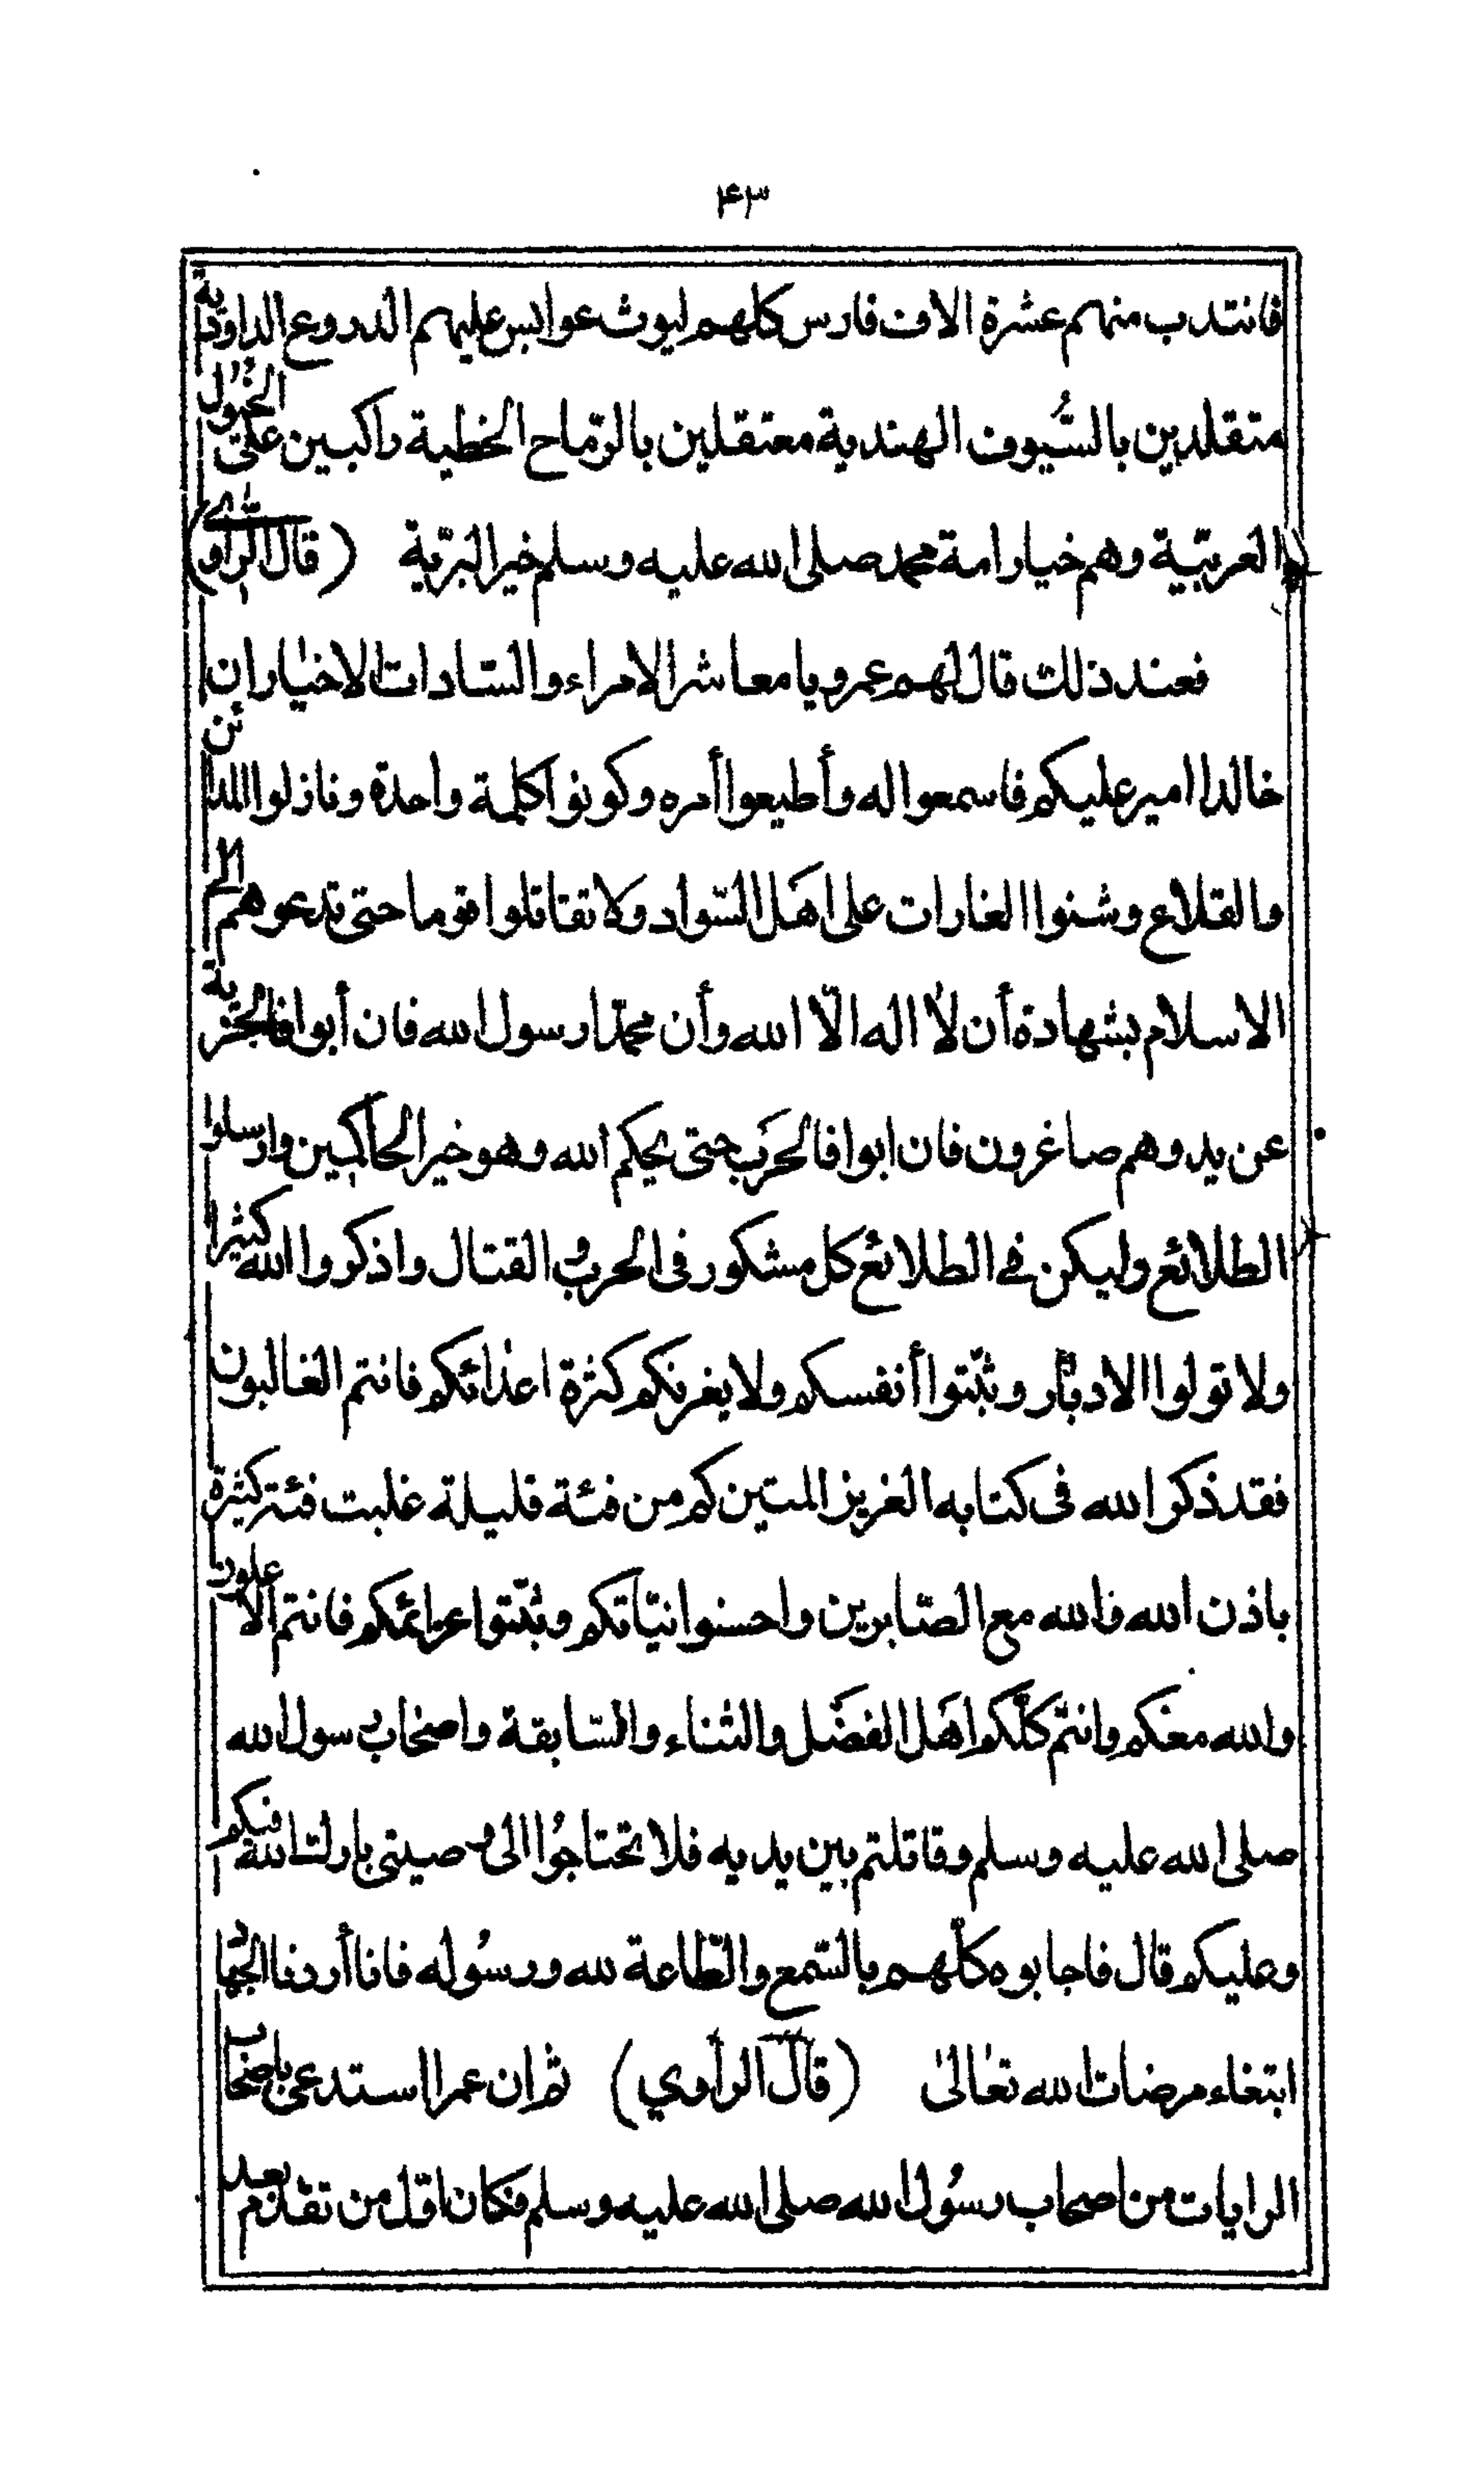 ۴۳
فانتدب منهم عشرة الاف فارس كلهم ليوث عوابس عليهم الدروع الداودية
متقلدين بالسُّيوف الهندية معتقلين بالرّماح الخطية راكبين على الخيول
العربيّة وهم خيار امة محمد صلى الله عليه وسلم خير البريّة (قال الراوي)
فعند ذلك قال لهم عمرو يا معاشر الامراء والسّادات الاخيار ان
خالدا امير عليكم فاسمعوا له وأطيعوا أمره وكونوا كلمة واحدة ونازلوا المدائن
والقلاع وشنوا الغارات على اهل السّواد ولا تقاتلوا قوما حتى تدعوهم الى
الاسلام بشهادة أن لا اله الّا الله وأن محمّدا رسول الله فان أبوا فالجزية
عن يد وهم صاغرون فان ابوا فالحرب حتى يحكم الله وهو خير الحاكمين وارسلوا
الطلائع وليكن في الطلائع كل مشكور فى الحرب و القتال واذكروا الله كثيرا
ولا تولوا الادبار وثبّتوا أنفسكم ولا يغرنكم كثرة اعدائكم فانتم الغالبون
فقد ذكر الله فى كتابه العزيز المتين كم من فئة قليلة غلبت فئة كثيرة
باذن الله والله مع الصّابرين واحسنوا نيّاتكم وثبّتوا عزائمكم فانتم الاعلون
والله معكم وانتم كلّكم اهل الفضل والثناء والسّابقة واصحاب رسول الله
صلى الله عليه وسلم وقاتلتم بين يديه فلا تحتاجُوا الى وصيتى بارك الله فيكم
وعليكم قال فاجابوه كلّهم بالسّمع والطّاعة لله ورسُوله فانا أردنا الجهاد
ابتغاء مرضات الله تعالى (قال الراوي) ثم ان عمرا استدعى باصحاب
الرايات من اصحاب رسُول الله صلى الله عليه وسلم فكان اوّل من تقدم بعد